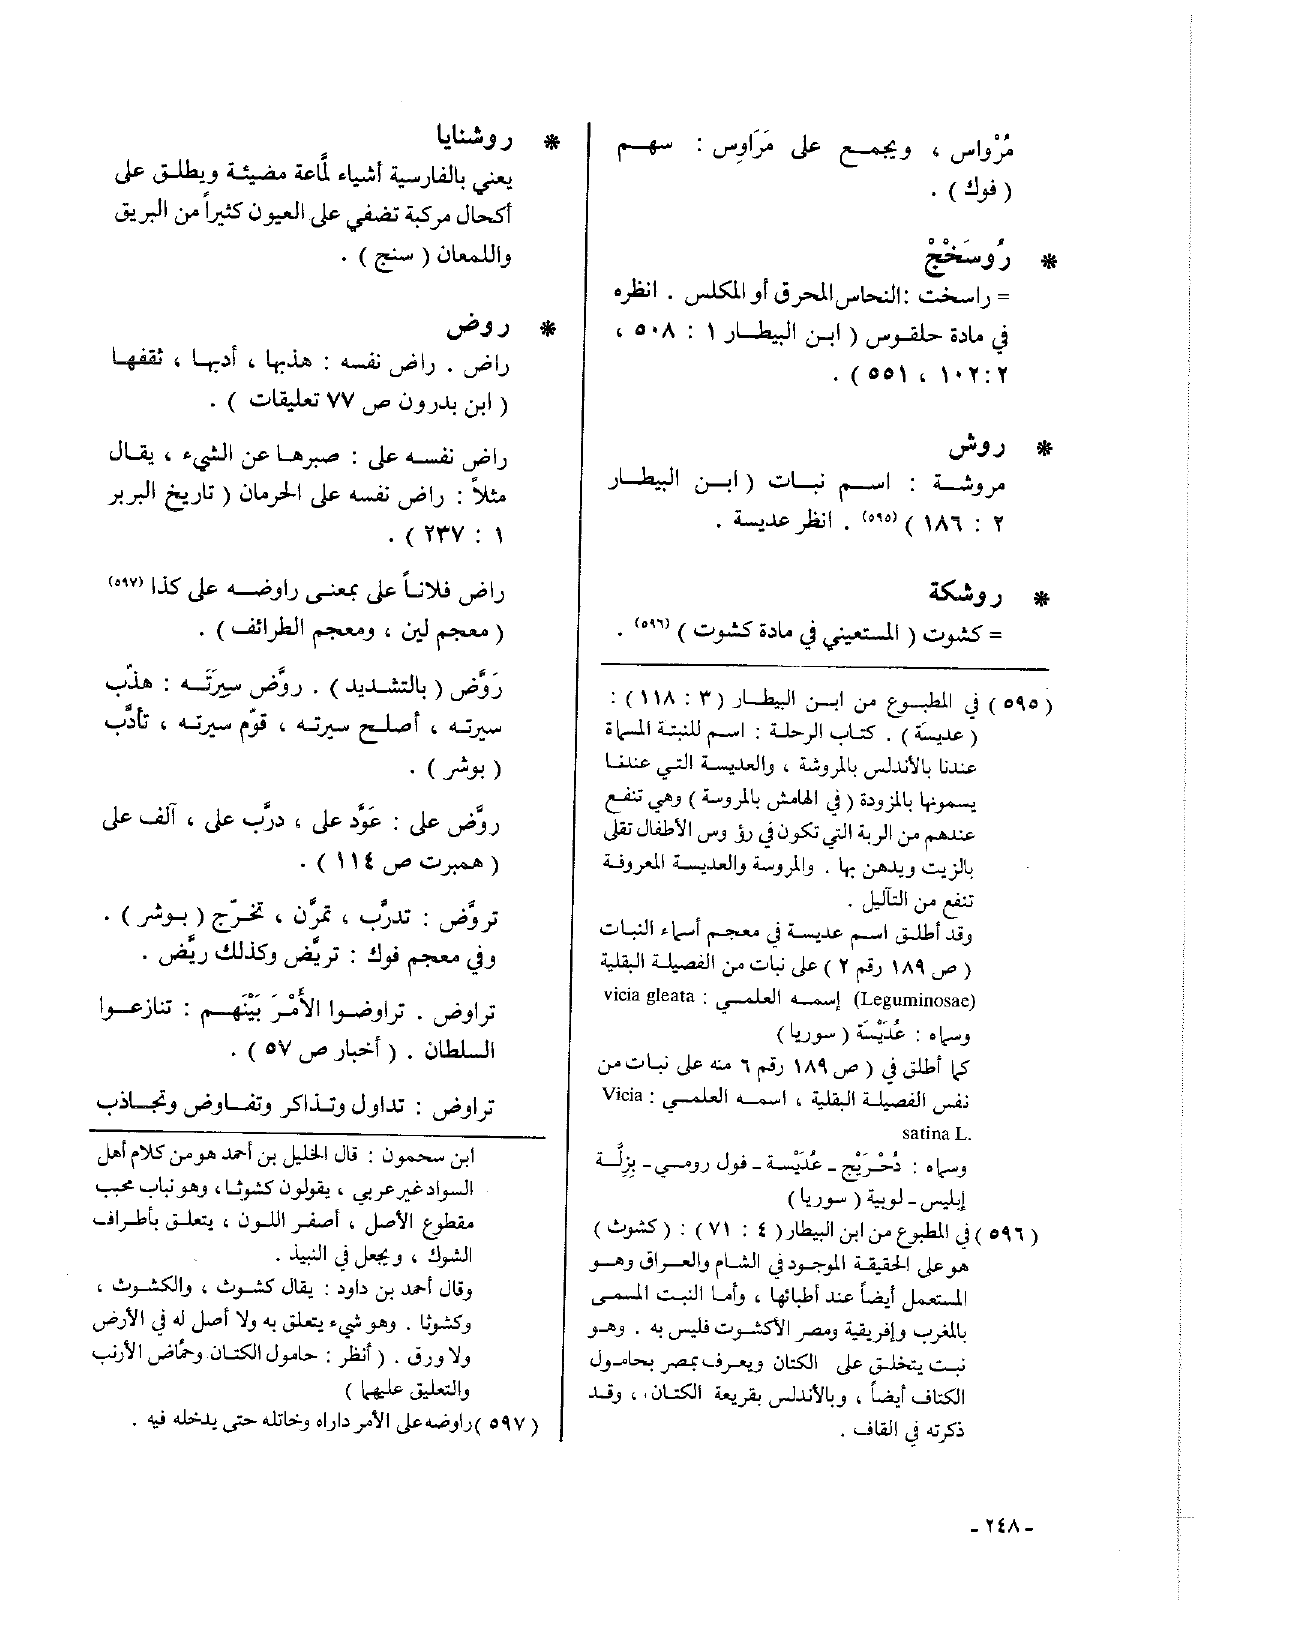 مُرْواس ، ويجمع على مَرَاوِس : سهم
( فوك ) .
* رُوسَخْتَجْ
= راسخت : النحاس المحرق أو المكلس . انظره
في مادة حلقوس ( ابن البيطار ١ : ٥٠٨ ،
٢ : ١٠٢ ، ٥٥١ ) .
* روش
مروشة : اسم نبات ( ابن البيطار
٢ : ١٨٦ ) (٥٩٥) . انظر عديسة .
* روشكة
= كشوت ( المستعيني في مادة كشوت ) (٥٩٦) .
( ٥٩٥ ) في المطبوع من ابن البيطار ( ٣ : ١١٨ ) :
( عديسة ) . كتاب الرحلة : اسم للنبتة المسماة
عندنا بالأندلس بالمروشة ، والعديسة التي عندنا
يسمونها بالمزودة ( في الهامش بالمروسة ) وهي تنفع
عندهم من الربة التي تكون في رؤوس الأطفال تقلى
بالزيت ويدهن بها . والمروسة والعديسة المعروفة
تنفع من الثآليل .
وقد أطلق اسم عديسة في معجم أسماء النبات
( ص ١٨٩ رقم ٢ ) على نبات من الفصيلة البقلية
(Leguminosae) إسمه العلمي : vicia gleata
وسماه : عُدَيْسَة ( سوريا )
كما أطلق في ( ص ١٨٩ رقم ٦ منه على نبات من
نفس الفصيلة البقلية ، اسمه العلمي : Vicia
satina L.
وسماه : دُحْرَيْج - عُدَيْسة - فول رومي - بِزِلَّة
إبليس - لوبية ( سوريا )
( ٥٩٦ ) في المطبوع من ابن البيطار ( ٤ : ٧١ ) : ( كشوث )
هو على الحقيقة الموجود في الشام والعراق وهو
المستعمل أيضاً عند أطبائها ، وأما النبت المسمى
بالمغرب وإفريقية ومصر الأكشوت فليس به . وهو
نبت يتخلق على الكتان ويعرف بمصر بحامول
الكتاف أيضاً ، وبالأندلس بقريعة الكتان ، وقد
ذكرته في القاف .
* روشنايا
يعني بالفارسية أشياء لمَّاعة مضيئة ويطلق على
أكحال مركبة تضفي على العيون كثيراً من البريق
واللمعان ( سنج ) .
* روض
راض . راض نفسه : هذبها ، أدبها ، ثقفها
( ابن بدرون ص ٧٧ تعليقات ) .
راض نفسه على : صبرها عن الشيء ، يقال
مثلاً : راض نفسه على الحرمان ( تاريخ البربر
١ : ٢٣٧ ) .
راض فلاناً على بمعنى راوضه على كذا (٥٩٧)
( معجم لين ، ومعجم الطرائف ) .
رَوَّض ( بالتشديد ) . روَّض سيرتَه : هذّب
سيرته ، أصلح سيرته ، قوّم سيرته ، تأدَّب
( بوشر ) .
روَّض على : عَوَّد على ، درَّب على ، آلف على
( همبرت ص ١١٤ ) .
تروَّض : تدرَّب ، تمرَّن ، تخرّج ( بوشر ) .
وفي معجم فوك : تريَّض وكذلك ريَّض .
تراوض . تراوضوا الأَمْرَ بَيْنَهم : تنازعوا
السلطان . ( أخبار ص ٥٧ ) .
تراوض : تداول وتذاكر وتفاوض وتجاذب
ابن سحمون : قال الخليل بن أحمد هو من كلام أهل
السواد غير عربي ، يقولون كشوثا ، وهو نباب محبب
مقطوع الأصل ، أصفر اللون ، يتعلق بأطراف
الشوك ، ويجعل في النبيذ .
وقال أحمد بن داود : يقال كشوث ، والكشوث ،
وكشوثا . وهو شيء يتعلق به ولا أصل له في الأرض
ولا ورق . ( أنظر : حامول الكتان وحمَّاض الأرنب
والتعليق عليهما )
( ٥٩٧ ) راوضه على الأمر داراه وخاتله حتى يدخله فيه .
- ٢٤٨ -